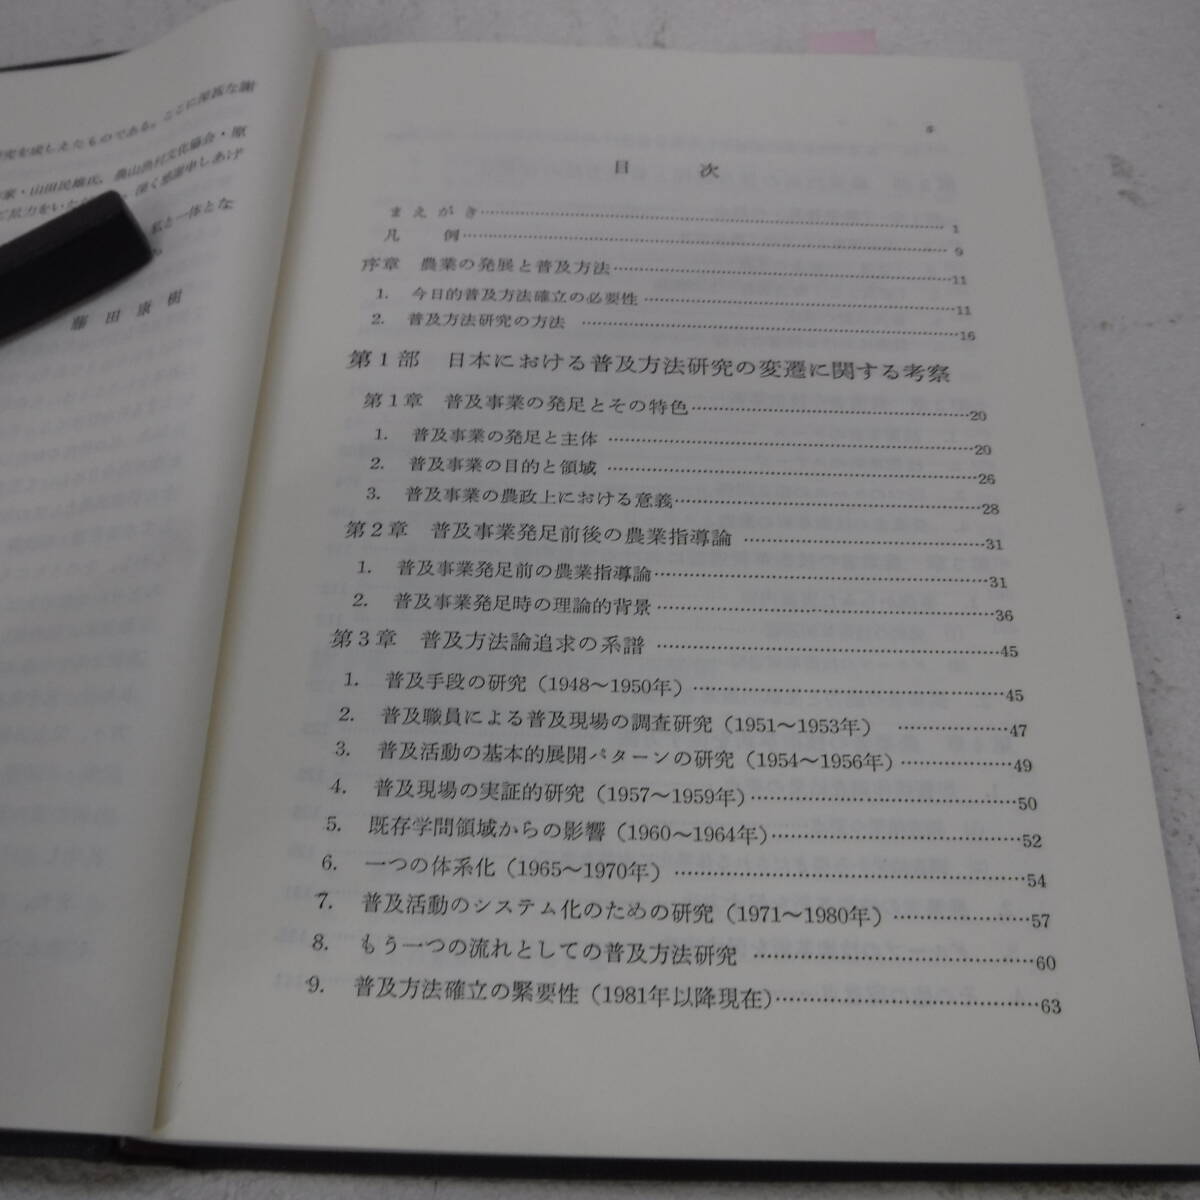 究を成しえたものである。ここに深甚な謝
家・山田民雄氏，農山漁村文化協会・原
深く感謝申しあげ
私と一体とな
藤田康樹
目次
まえがき……1
凡例……9
序章 農業の発展と普及方法……11
1. 今日的普及方法確立の必要性……11
2. 普及方法研究の方法……16
第1部 日本における普及方法研究の変遷に関する考察
第1章 普及事業の発足とその特色……20
1. 普及事業の発足と主体……20
2. 普及事業の目的と領域……26
3. 普及事業の農政上における意義……28
第2章 普及事業発足前後の農業指導論……31
1. 普及事業発足前の農業指導論……31
2. 普及事業発足時の理論的背景……36
第3章 普及方法論追求の系譜……45
1. 普及手段の研究（1948～1950年）……45
2. 普及職員による普及現場の調査研究（1951～1953年）……47
3. 普及活動の基本的展開パターンの研究（1954～1956年）……49
4. 普及現場の実証的研究（1957～1959年）……50
5. 既存学問領域からの影響（1960～1964年）……52
6. 一つの体系化（1965～1970年）……54
7. 普及活動のシステム化のための研究（1971～1980年）……57
8. もう一つの流れとしての普及方法研究……60
9. 普及方法確立の緊要性（1981年以降現在）……63